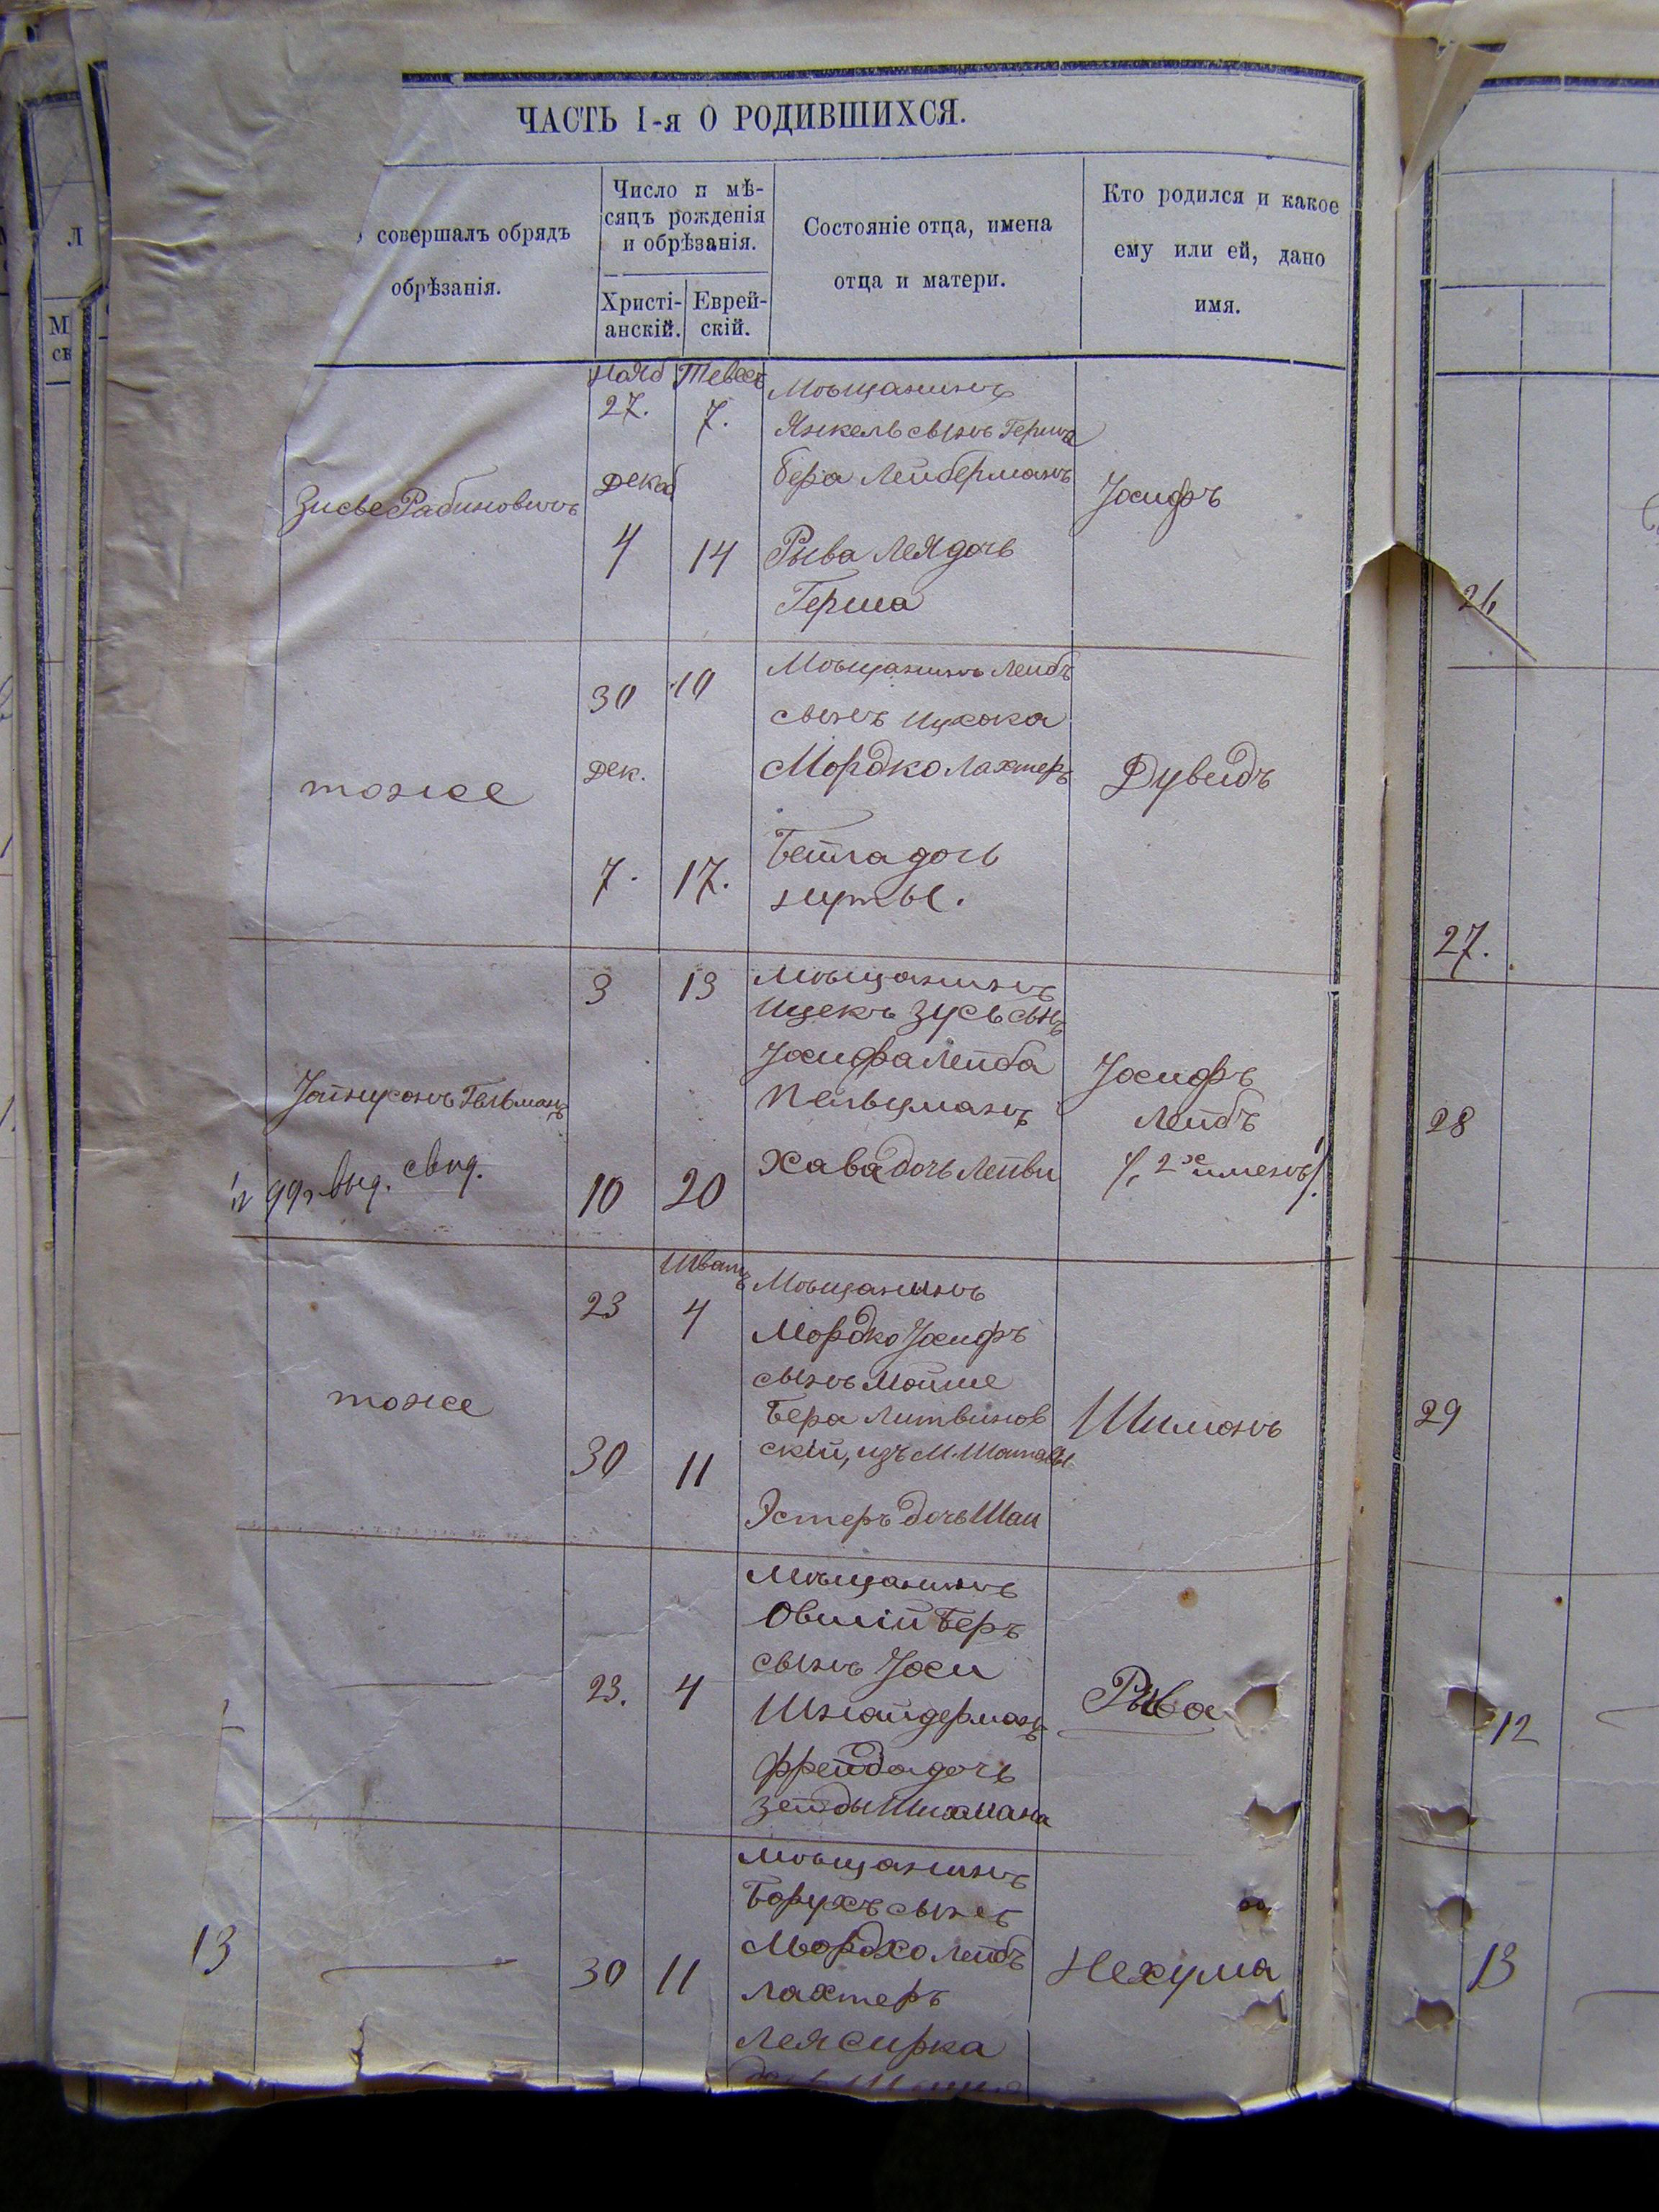 ЧАСТЬ I-я О РОДИВШИХСЯ.
совершалъ обрядъ
обрѣзанія.
Число и мѣ-
сяцъ рожденія
и обрѣзанія.
Христі-
анскій.
Еврей-
скій.
Состояніе отца, имена
отца и матери.
Кто родился и какое
ему или ей, дано
имя.
Зисье Рабиновичъ
Нояб
27.
Декаб
4
Тевесъ
7.
14
Мѣщанинъ
Янкель сынъ Герша
Бера Лейберманъ
Рыва Лея дочь
Герша
Іосифъ
тоже
30
Дек.
7.
10
17.
Мѣщанинъ Лейбъ
сынъ Ицхока
Мордко Лахтеръ
Бейла дочь
Нуты.
Дувидъ
Гельманъ
99 г. выд. свид.
3
10
13
20
Мѣщанинъ
Ицекъ Зусь сынъ
Іосифа Лейба
Пельцманъ
Хава дочь Лейви
Іосифъ
Лейбъ
/, 2х именъ/.
тоже
23
30
Шватъ
4
11
Мѣщанинъ
Мордко Іосифъ
сынъ Мойше
Бера Литвинов
скій, изъ М. Шатавы
Эстеръ дочь Шаи
Шимонъ
23.
4
Мѣщанинъ
Овшій Беръ
сынъ Іоси
Шнайдерманъ
Фрейда дочь
Зейды Шихмана
Рыва
13
30
11
Мѣщанинъ
Борухъ сынъ
Мордхо Лейбъ
Лахтеръ
Лея Сирка
дочь
Нехума
26
27.
28
29
12
13
Л